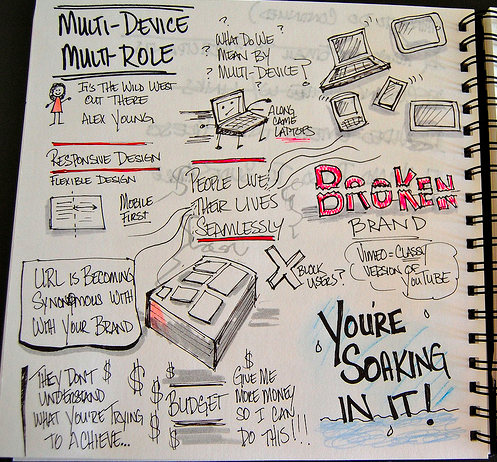 MULTI-DEVICE
MULTI-ROLE
IT'S THE WILD WEST
OUT THERE
ALEX YOUNG
? WHAT DO WE ?
MEAN BY
? MULTI-DEVICE?
ALONG
CAME
LAPTOPS
RESPONSIVE DESIGN
FLEXIBLE DESIGN
MOBILE
FIRST
PEOPLE LIVE
THEIR LIVES
SEAMLESSLY
BROKEN
BRAND
VIMEO = CLASSY
VERSION OF
YOUTUBE
X BLOCK
USERS?
URL IS BECOMING
SYNONOMOUS WITH
WITH YOUR BRAND
YOU'RE
SOAKING
IN IT!
THEY DON'T
UNDERSTAND
WHAT YOU'RE TRYING
TO ACHIEVE...
$ $ $ $ $
BUDGET
$ $ $ $
GIVE ME
MORE MONEY
SO I CAN
DO THIS!!!